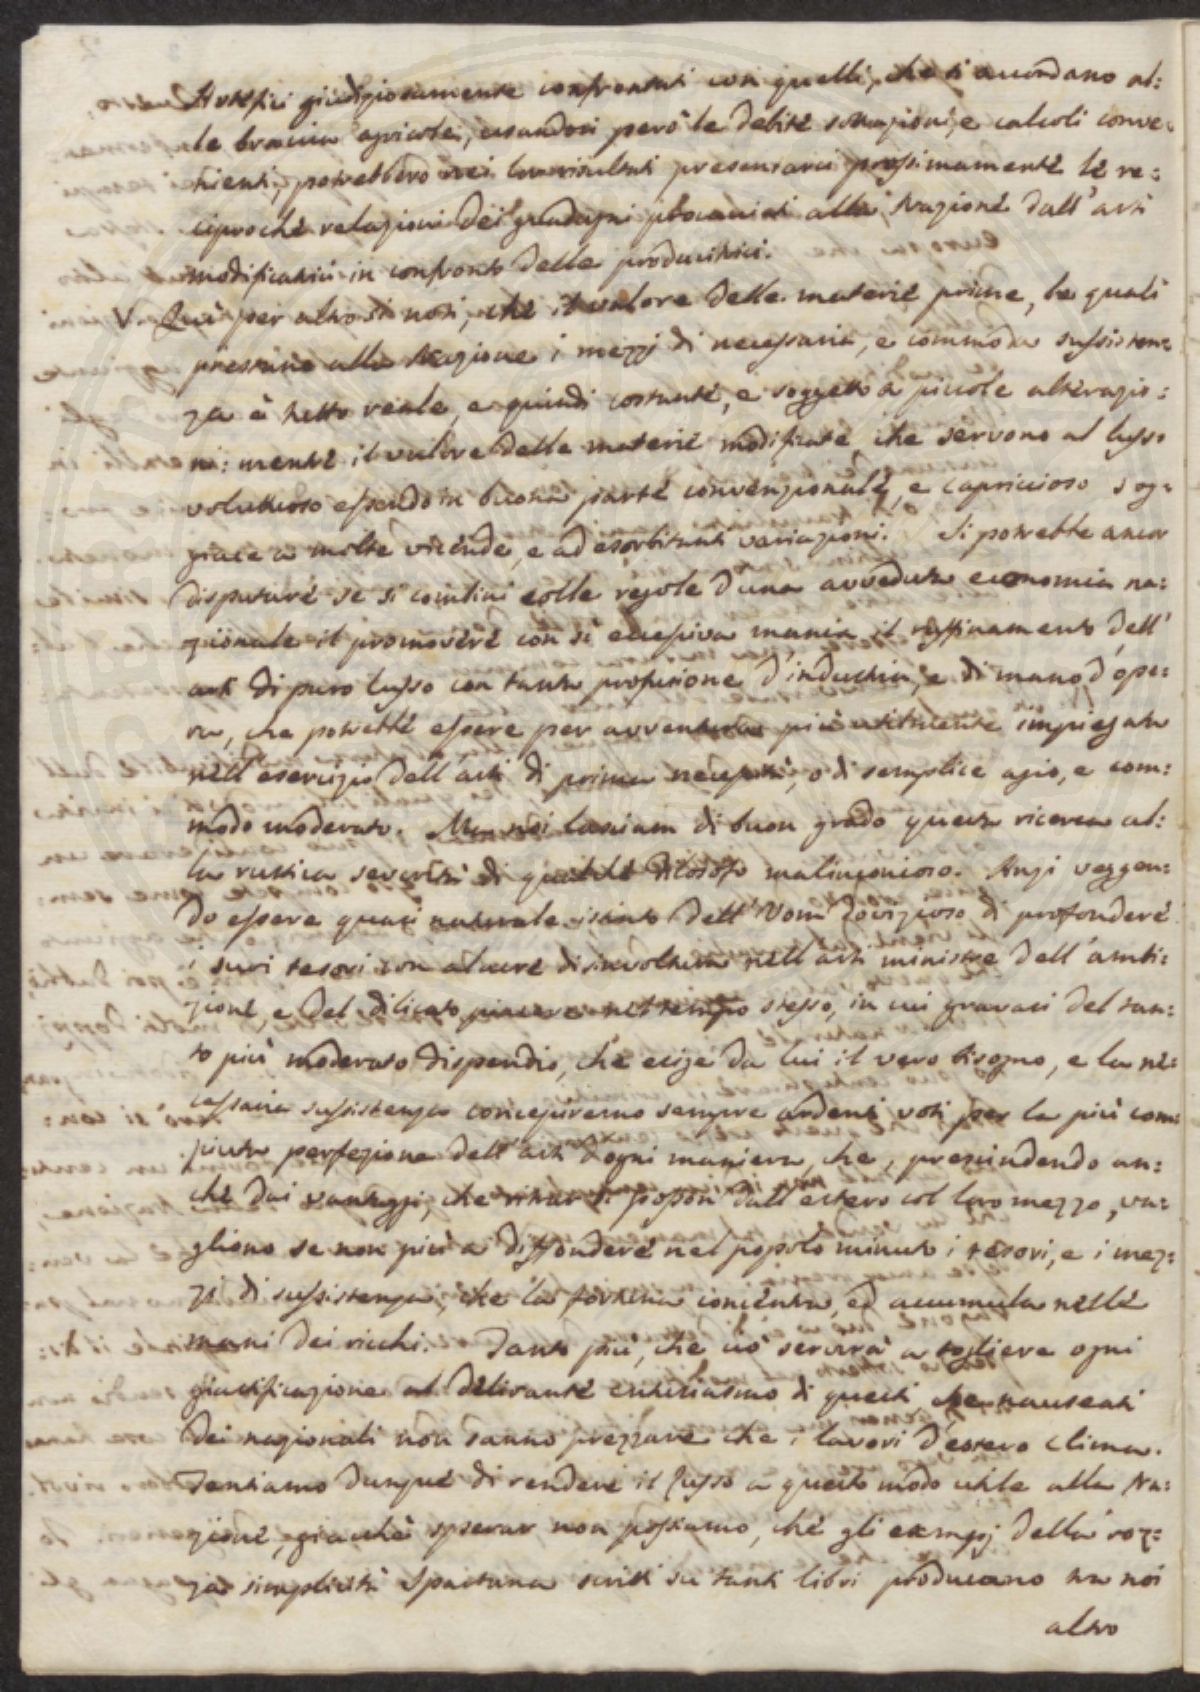 Artefici giudiziosamente confrontati con quelli, che si accordano al:
le braccia agricole, usandosi però le debite sottrazioni, e calcoli conve:
nienti, potrebbero nei loro risultati presentarci prossimamente le re:
ciproche relazioni dei guadagni procacciati alla Nazione dall'arti
modificatrici in confronto delle produttrici.
V. Quì per altro si noti, che il valore delle materie prime, le quali
prestano alla Nazione i mezzi di necessaria, e commoda sussisten:
za è tutto reale, e quindi costante, e soggetto a piccole alterazio:
ni: mentre il valore delle materie modificate, che servono al lusso
voluttuoso essendo in buona parte convenzionale, e capriccioso sog:
giace a molte vicende, e ad esorbitanti variazioni. Si potrebbe ancor
disputare se si combini colle regole d'una avveduta economia na:
zionale il promovere con sì eccessiva mania il raffinamento dell'
arti di puro lusso con tanta profusione d'industria, e di mano d'ope:
ra, che potrebbe essere per avventura più utilmente impiegata
nell'esercizio dell'arti di prima necessità, o di semplice agio, e com:
modo moderato. Ma noi lasciam di buon grado questa ricerca al:
la rustica severità di qualche Filosofo malinconioso. Anzi veggen:
do essere quasi naturale istinto dell'Uom dovizioso di profondere
i suoi tesori con alacre disinvoltura nell'arti ministre dell'ambi:
zione, e del dilicato piacere nel tempo stesso, in cui gravasi del tan:
to più moderato dispendio, che esige da lui il vero bisogno, e la ne:
cessaria sussistenza concepiremo sempre ardenti voti per la più com:
piuta perfezione dell'arti d'ogni maniera, che, prescindendo an:
che dai vantaggi, che ritrar si posson dall'estero col loro mezzo, va:
gliono se non più a diffondere nel popolo minuto i tesori, e i mez:
zi di sussistenza, che la fortuna concentra, ed accumula nelle
mani dei ricchi. Tanto più, che ciò servirà a togliere ogni
giustificazione al delirante entusiasmo di questi che nauseati
dei nazionali non sanno prezzare che i lavori d'estero clima.
Tentiamo dunque di rendere il lusso a questo modo utile alla Na:
zione, giacchè sperar non possiamo, che gli esempj della roz:
za simplicità Spartana scritti su tanti libri producano tra noi
altro